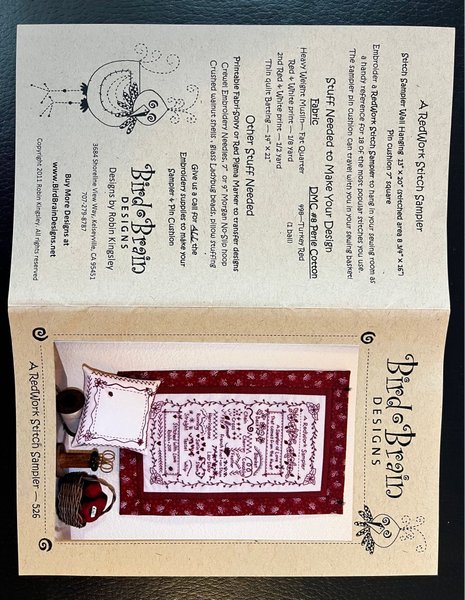 A RedWork Stitch Sampler
Stitch Sampler Wall Hanging 13" x 20" (stitched area 8 3/4" x 16")
Pin cushion 7" square
Embroider a RedWork Stitch Sampler to hang in your sewing room as
a handy reference for 18 of the most popular stitches you use.
The sampler pin cushion can travel with you in your sewing basket!
Stuff Needed to Make Your Design
Fabric
Heavy Weight Muslin—Fat Quarter
Red & White print — 1/8 Yard
2nd Red & White print — 1/2 Yard
Thin quilt Batting — 14" x 21"
DMC #8 Perle Cotton
498—Turkey Red
(1 ball)
Other Stuff Needed
Printable Fabri-Solvy or Red Pigma Marker to transfer designs
Crewel Embroidery Needles, 7" or 9" Morgan No-Slip hoop
Crushed walnut shells, glass Ladybug beads, pillow stuffing
Give us a call for ALL the
Embroidery supplies to make your
Sampler & Pin Cushion
Bird Brain
DESIGNS
Designs by Robin Kingsley
3684 Shoreline View Way, Kelseyville, CA 95451
707-279-8787
Buy More Designs at
www.BirdBrainDesigns.net
Copyright 2011 Robin Kingsley. All rights reserved
Bird Brain
DESIGNS
A RedWork Stitch Sampler — 526